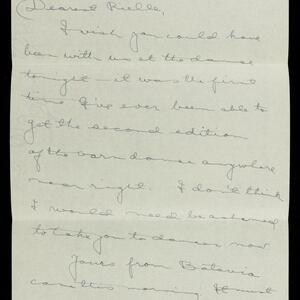 Dearest Rielle,
I wish you could have
been with us at the dance
tonight - it was the first
time I've ever been able to
get the second edition
of the barn dance anywhere
near right. I don't think
I would need be ashamed
to take you to dances now
Yours from Batavia
came this morning. It must